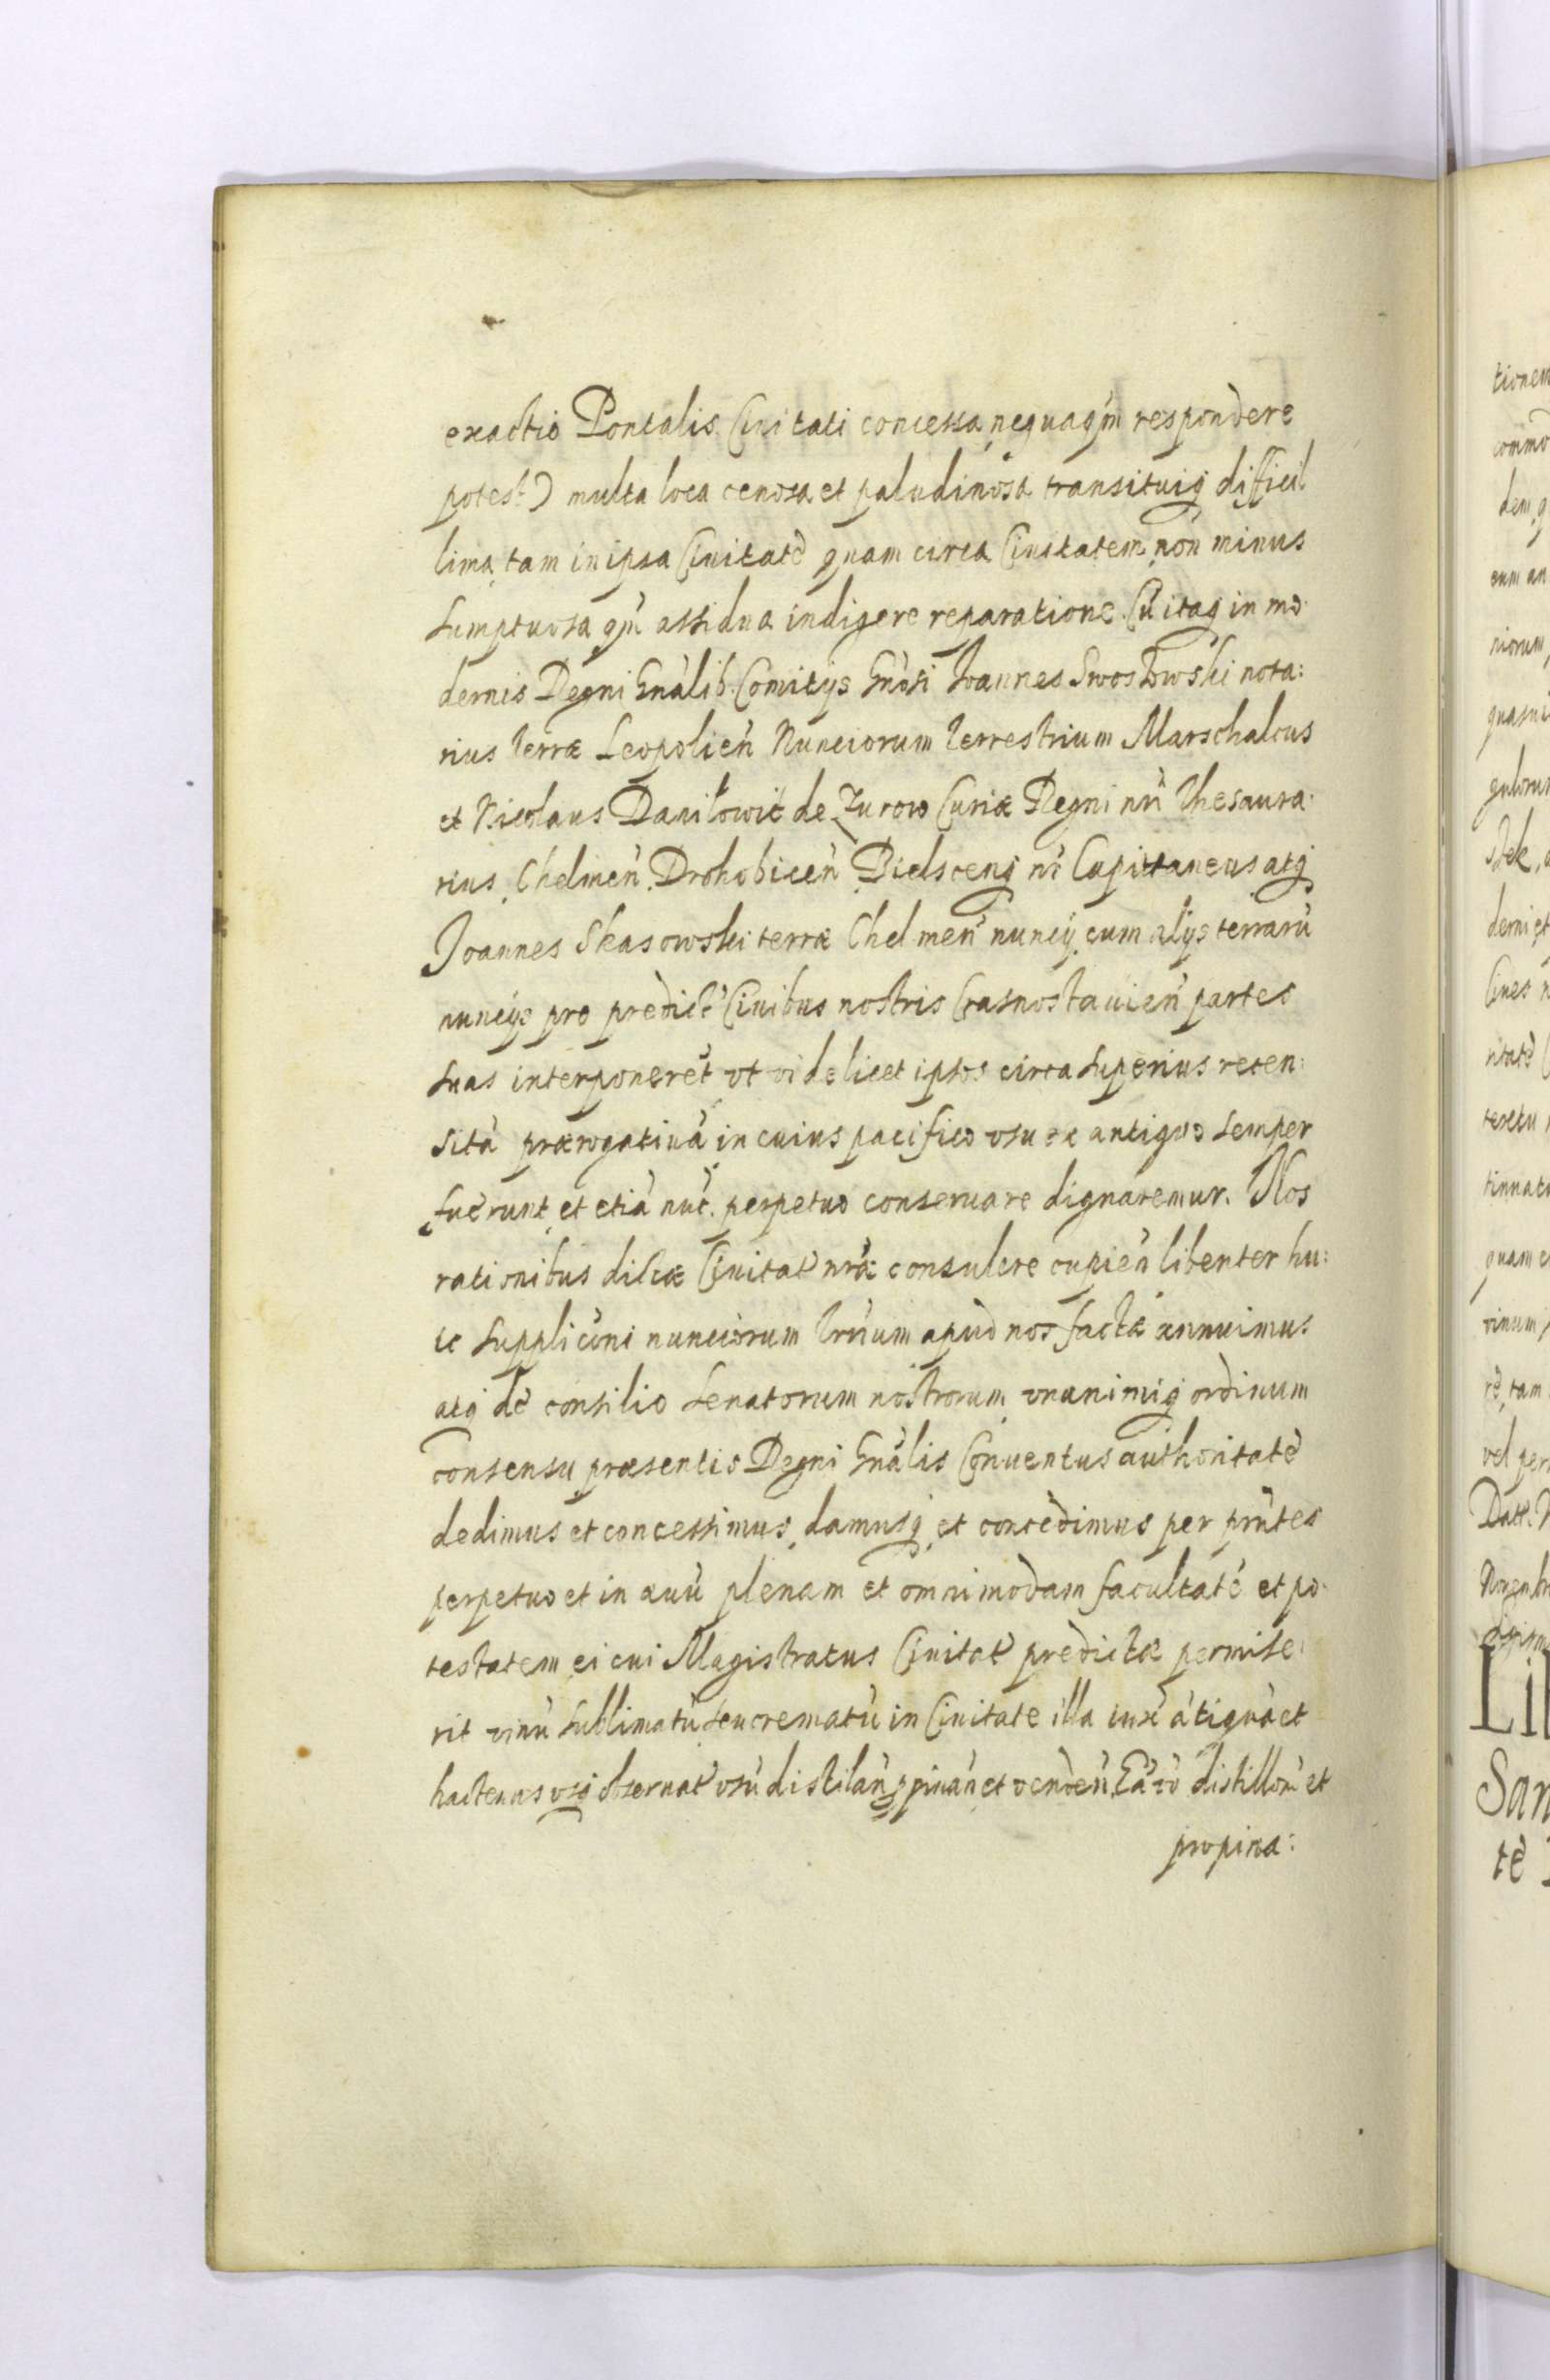 exactio Pontalis Ciuitati concessa, nequaq́m respondere
potest) multa loca cenosa et paludinosa transituiq́ difficil
lima, tam in ipsa Ciuitatè quam circa Ciuitatem, non minus
sumptuosa q́m assidua indigere reparatione. Cu itaq́ in mo:
dernis Regni Gnàlib. Comitijs Gnòsi Joannes Swoszowski nota:
rius terræ Leopolień Nunciorum terrestrium Marschalcus
et Nicolaus Daniłowić de Zurow Curiæ Regni nrì Thesaura:
rius, Chelmeń, Drohobiceń, Bielsceńq́ nr̀ Capittaneus atq́
Joannes Skasowski terræ Chelmeń nuncij, cum alijs terrarù
nuncijs pro predict́ Ciuibus nostris Crasnostauień partes
suas interponerèt, vt videlicet ipsos circa superius recen:
sità prærogatiuà in cuius pacifico vsu ex antiquo semper
fuèrunt, et etià nuc̀, perpetuo conseruare dignaremur. Nos
rationibus dilcæ Ciuitat́ nræ̀ consulere cupień libenter hu:
ic supplicòni nunciorum trr̀um apud nos factæ annuimus
atq́ dè consilio senatorum nostrorum, vnanimiq́ ordinum
consensu, præsentis Regni Gnàlis Conuentus authoritatè
dedimus et concessimus, damusq́, et concèdimus per prǹtes
perpetuo et in æuù plenam et omnimodam facultatè et po:
testatem, ei cui Magistratus Ciuitat́ predictæ permise:
rit vinù sublimatù seu crematù in Ciuitate illa iux̀ àtiquà et
hactenus vsq́ obseruat́ vsù distilań, ppinań et vendeń, Eà vò distillòn̄ et
propina:

tionem
commo
dem, q
eum an
niorum,
gulorum
derni et
Ciues n
ritatè
quam e
vinum,
rè, tam
vel per
Datt.
Nouemb
Lil
San
tè